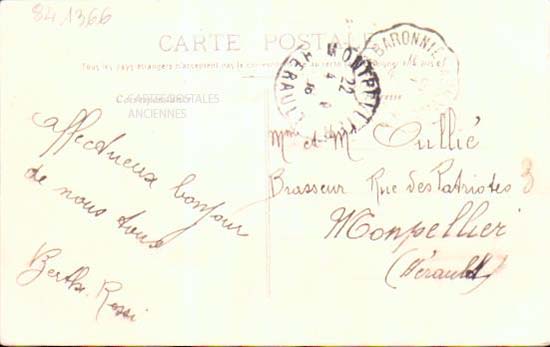 841366
CARTE POSTALE
Tous les pays étrangers n'acceptent pas
Correspondance
CARTES POSTALES
ANCIENNES
MONTPELLIER
22
4
16
HERAULT
BARONNIE
affectueux bonjour
de nous tous
Berthe Rossi
Mme et M Oullié
Brasseur Rue des Patriotes 3
Monpellier
(Hérault)